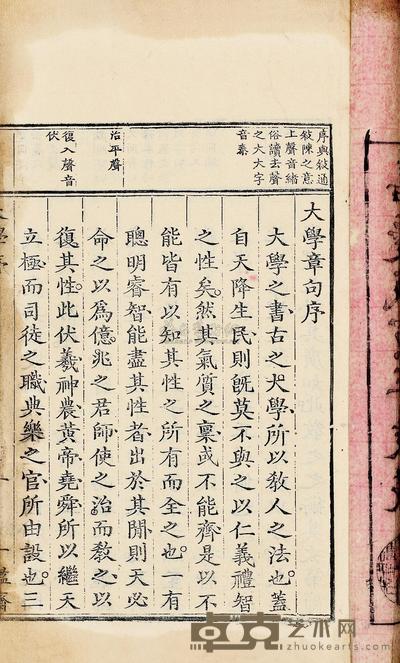 序與敍通
敍陳之意
上聲音緖
俗讀去聲
之大大字
音泰
治平聲
復入聲音
伏
大學章句序
大學之書古之大學所以敎人之法也蓋
自天降生民則旣莫不與之以仁義禮智
之性矣然其氣質之稟或不能齊是以不
能皆有以知其性之所有而全之也一有
聰明睿智能盡其性者出於其閒則天必
命之以爲億兆之君師使之治而敎之以
復其性此伏羲神農黃帝堯舜所以繼天
立極而司徒之職典樂之官所由設也三
卓克艺术网
www.zhuokearts.com